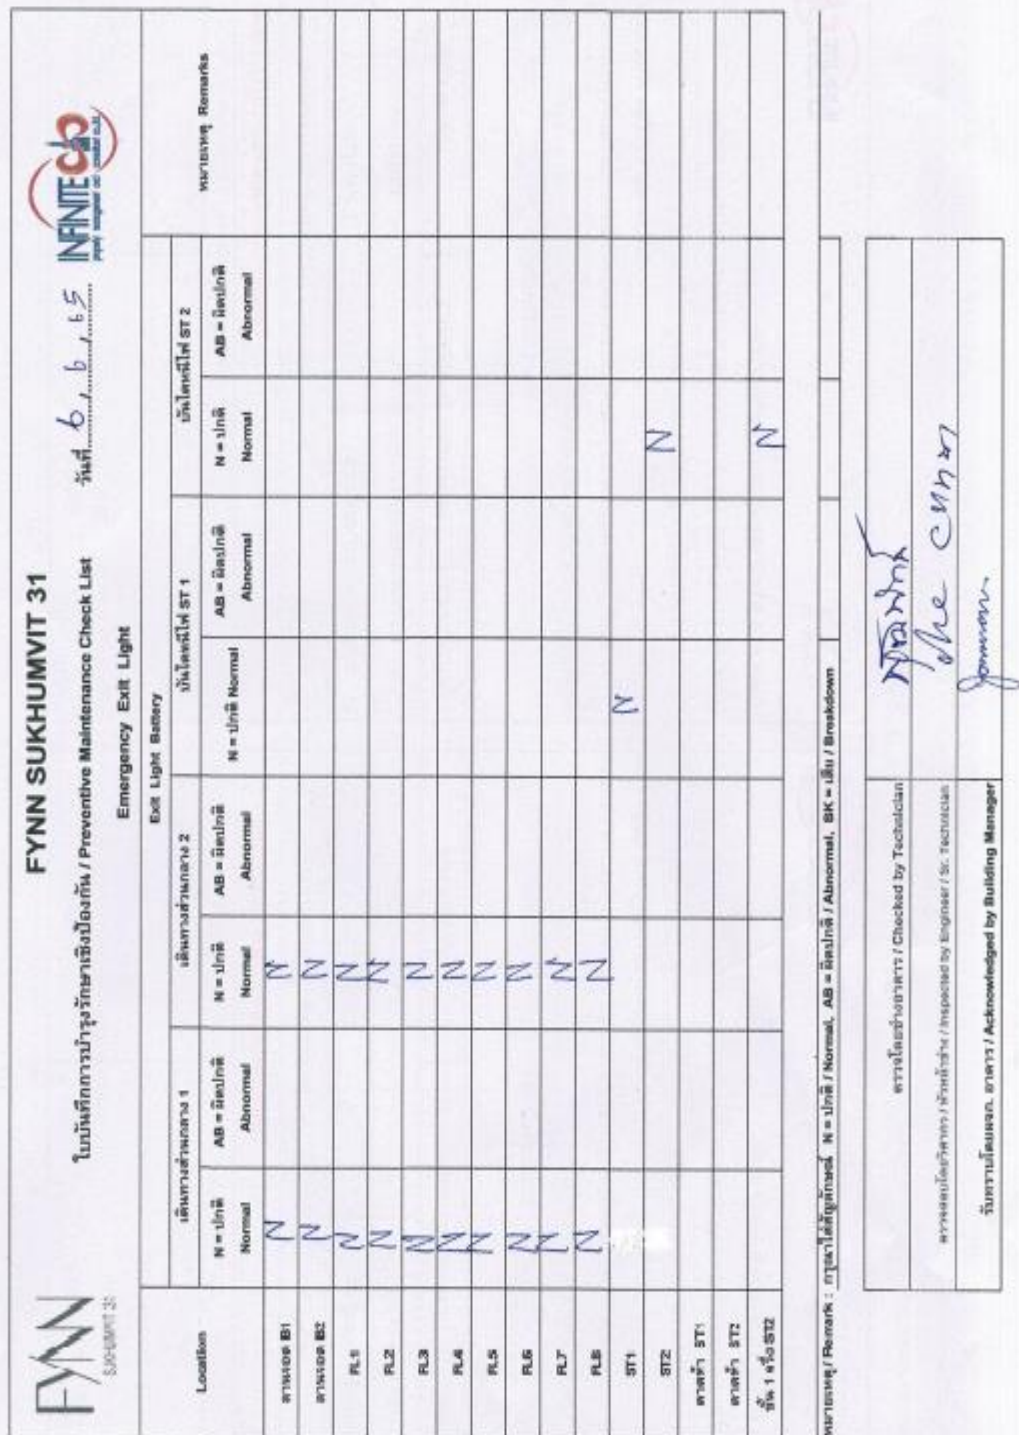 FYNN
SUKHUMVIT 31
FYNN SUKHUMVIT 31
INFINITE
ใบบันทึกการบำรุงรักษาเชิงป้องกัน / Preventive Maintenance Check List
วันที่ 6 / 6 / 65
Emergency Exit Light
Location
Exit Light Battery
หมายเหตุ Remarks
เดินทางส่วนกลาง 1
เดินทางส่วนกลาง 2
บันไดหนีไฟ ST 1
บันไดหนีไฟ ST 2
N = ปกติ Normal
AB = ผิดปกติ Abnormal
N = ปกติ Normal
AB = ผิดปกติ Abnormal
N = ปกติ Normal
AB = ผิดปกติ Abnormal
N = ปกติ Normal
AB = ผิดปกติ Abnormal
ลานจอด B1 N N
ลานจอด B2 N N
FL1 N N
FL2 N N
FL3 N N
FL4 N N
FL5 N N
FL6 N N
FL7 N N
FL8 N N
ST1 N
ST2 N
ดาดฟ้า ST1
ดาดฟ้า ST2
ชั้น 1 ST2 N
หมายเหตุ / Remark : กรุณาใส่สัญลักษณ์ N = ปกติ / Normal, AB = ผิดปกติ / Abnormal, BK = เสีย / Breakdown
ตรวจโดยช่างอาคาร / Checked by Technician
ตรวจสอบโดยวิศวกร / หัวหน้าช่าง / Inspected by Engineer / Sr. Technician
รับทราบโดยผจก. อาคาร / Acknowledged by Building Manager